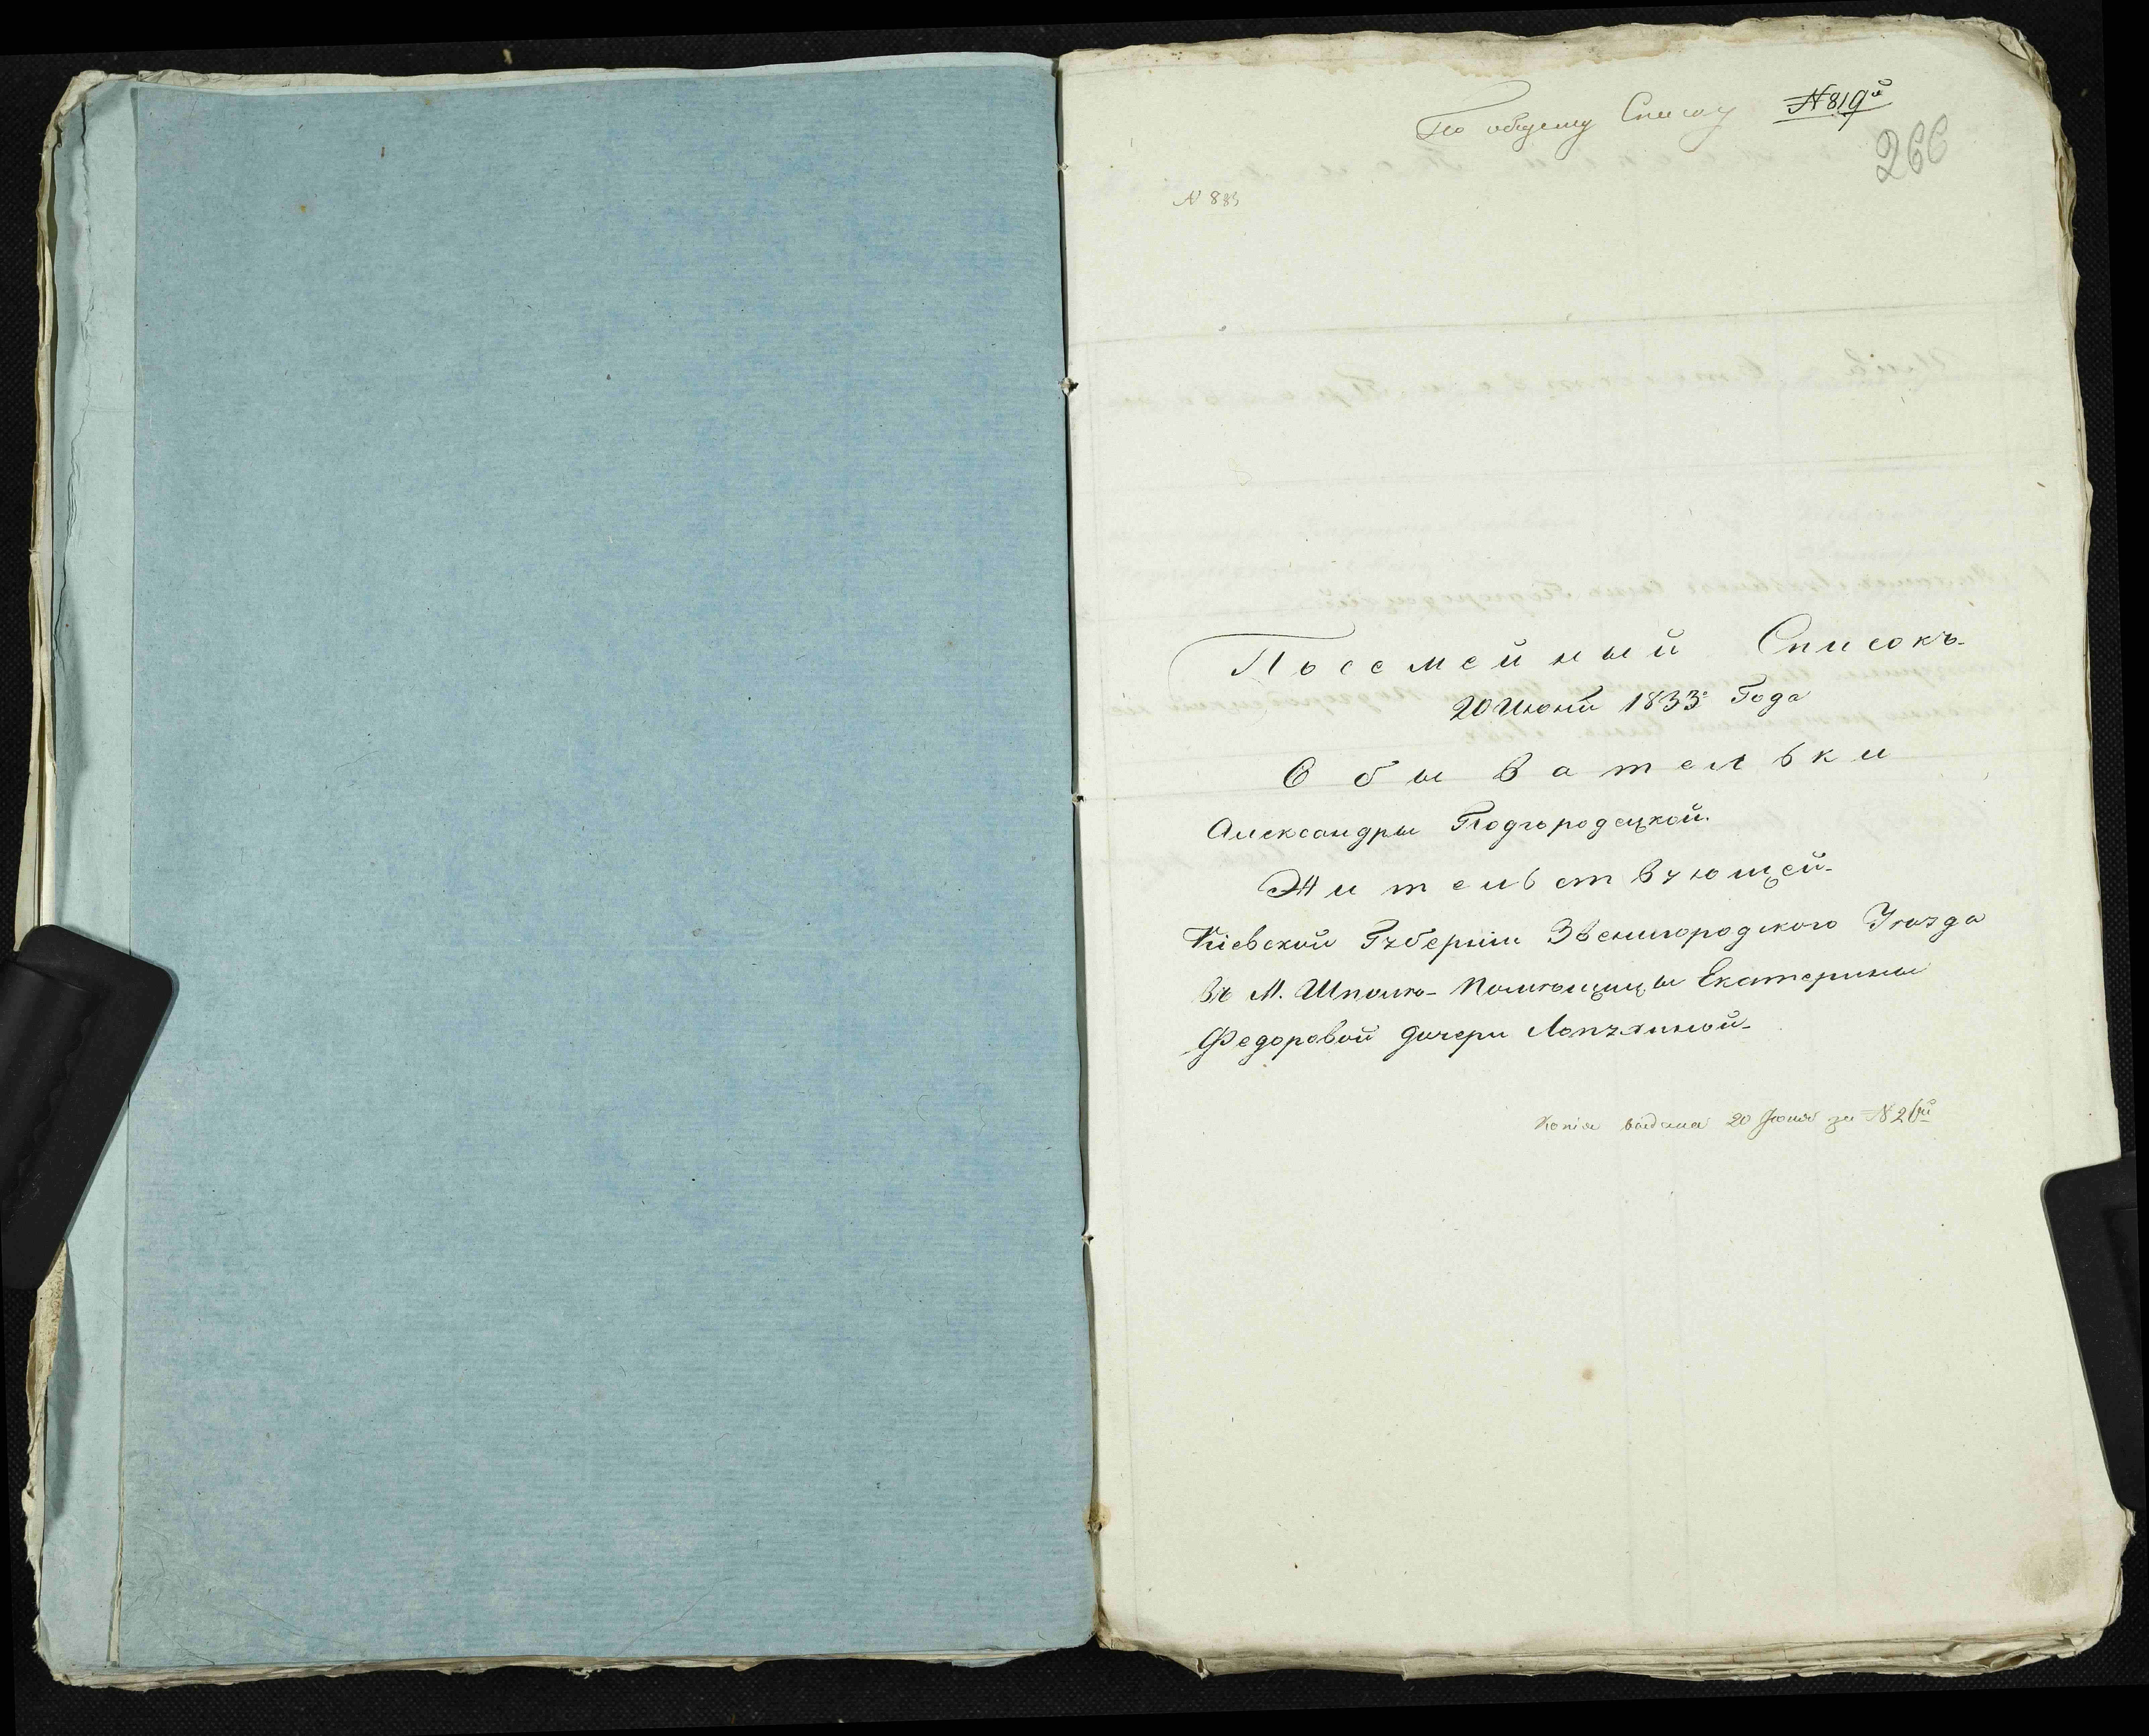 По общему Списку № 819й
266
№ 883
Посемейный Списокъ
20 Июня 1833 Года
Обывательки
Александры Подгородецкой.
Жительствующей
Кіевской Губерніи Звенигородского Уѣзда
въ М. Шполѣ Помѣщицы Екатерины
Федоровой дочери Лопухиной
Копія выдана 20 Июня за № 26й